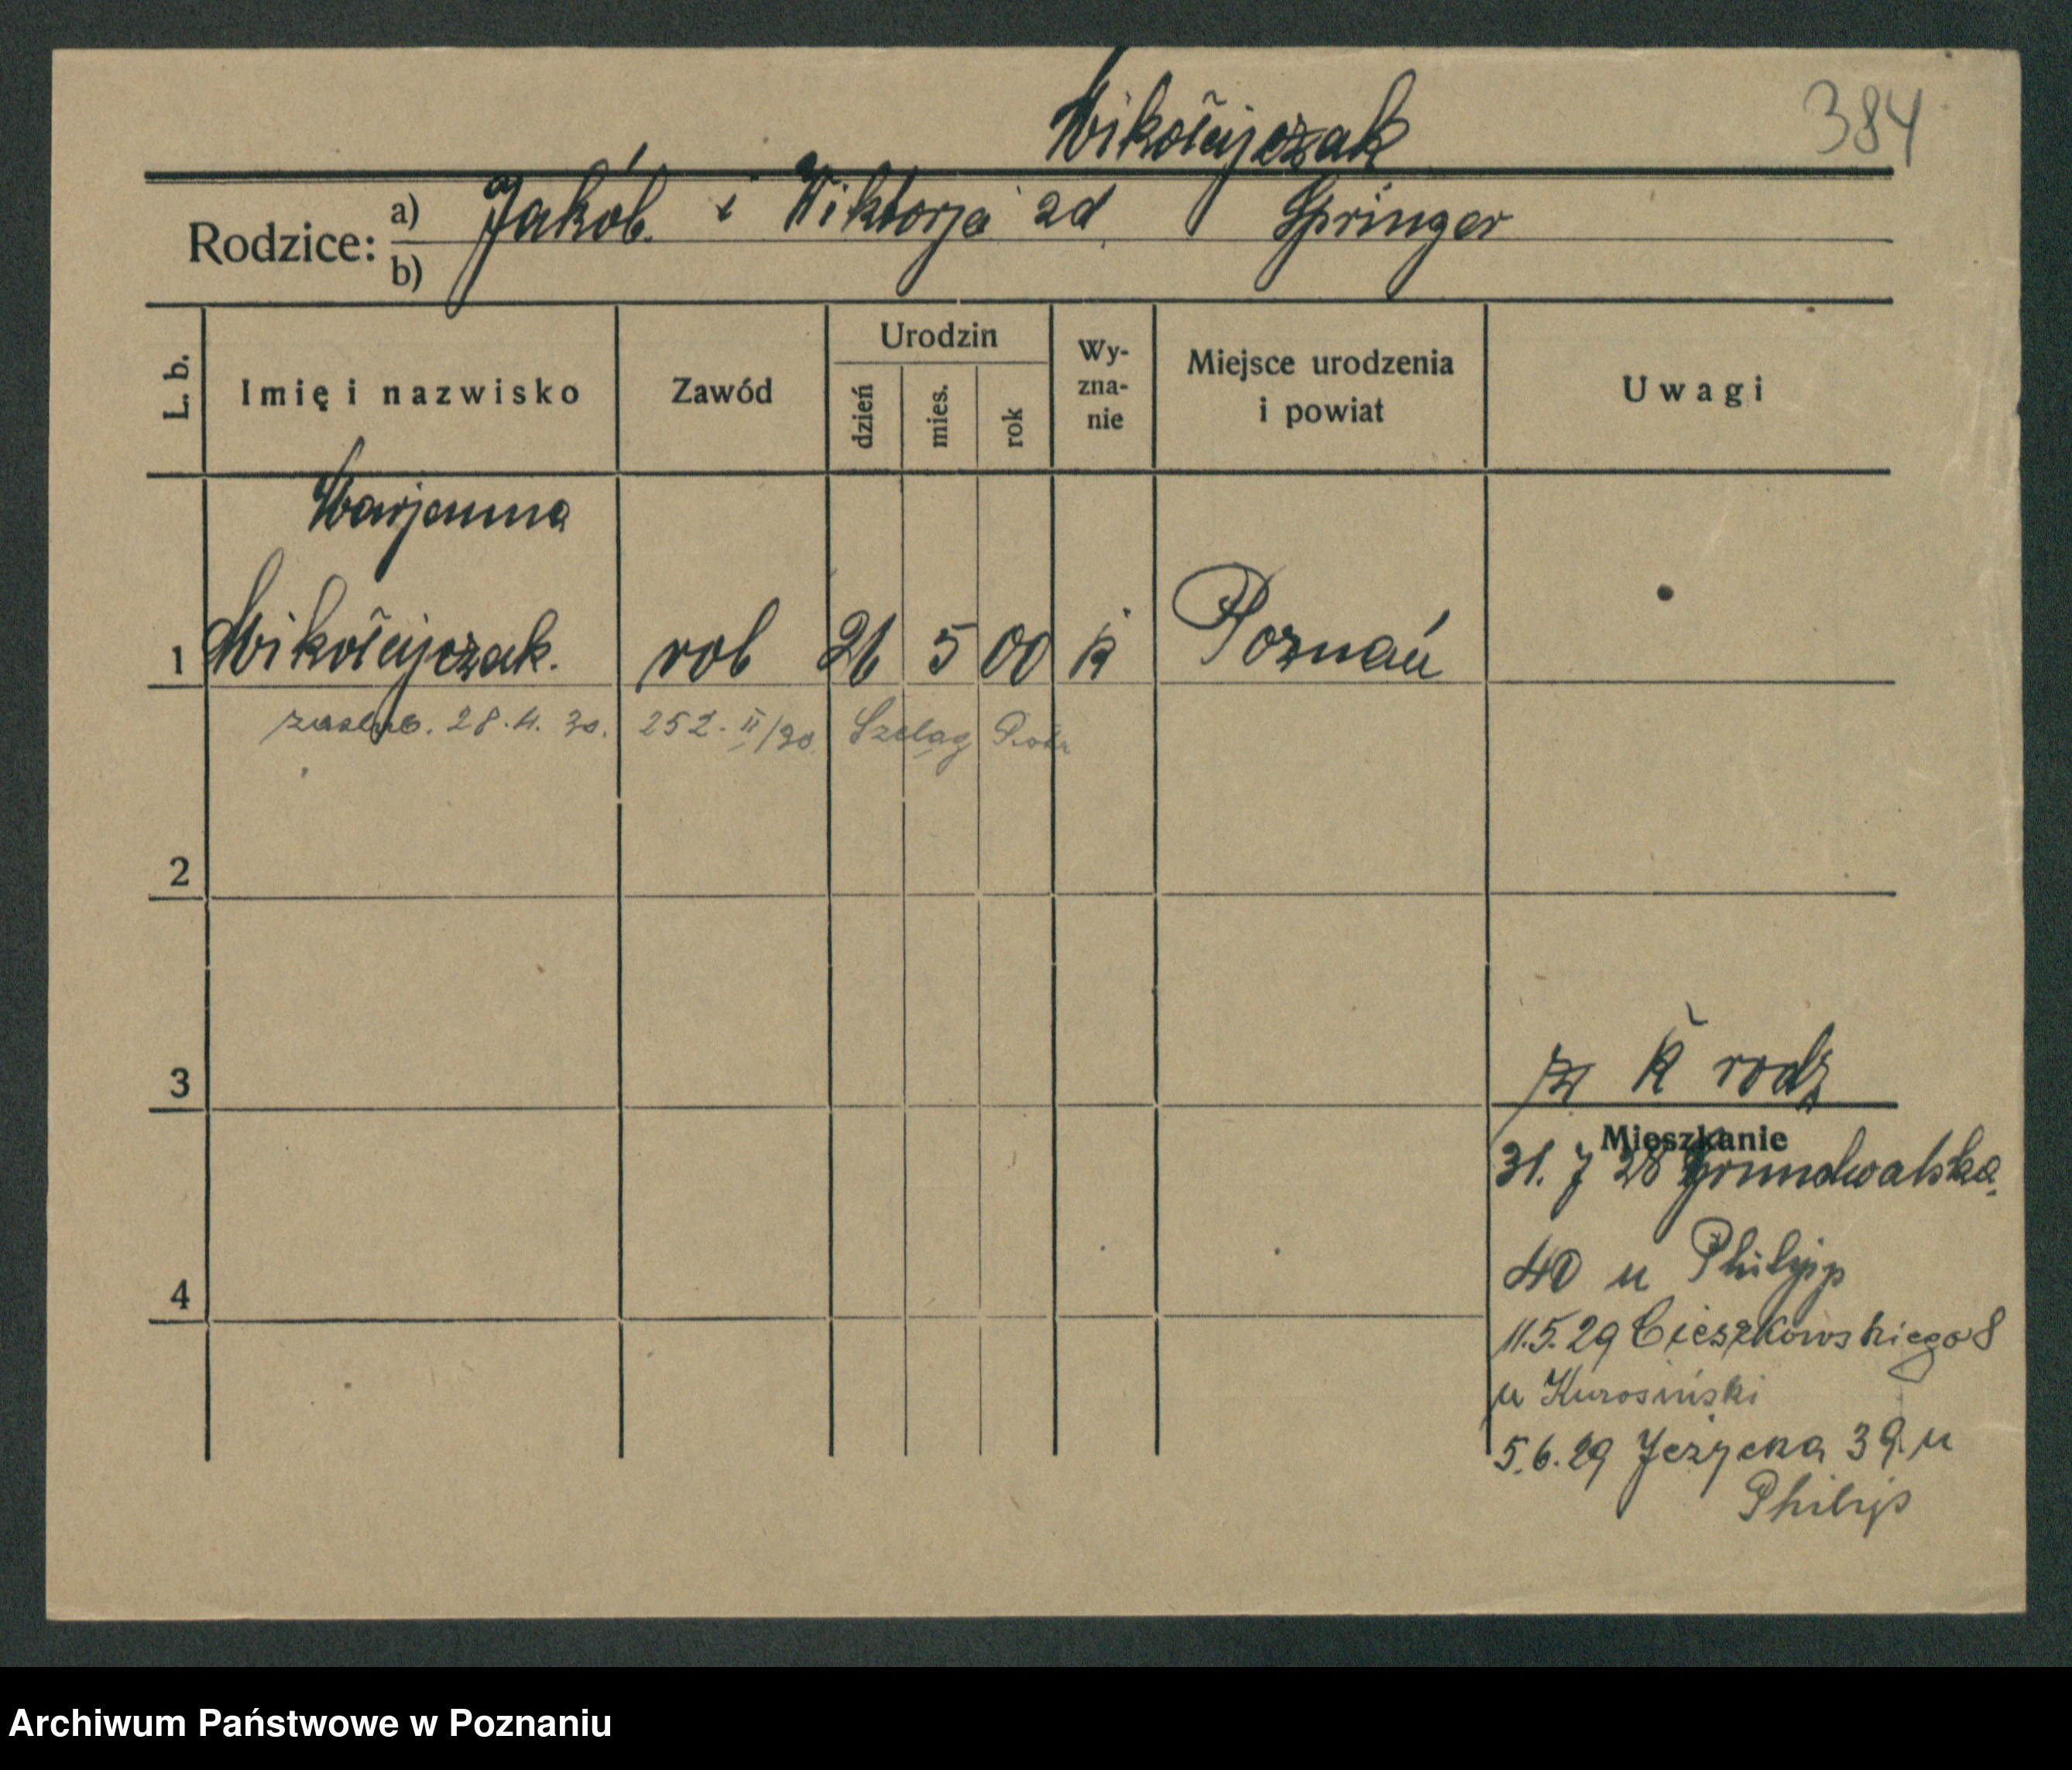 Mikołajczak
384
Rodzice: a) Jakób i Wiktorja zd Springer
b)
L. b. Imię i nazwisko Zawód Urodzin dzień mies. rok Wy-zna-nie Miejsce urodzenia i powiat Uwagi
Marjanna
1 Mikołajczak. rob 26 5 00 k Poznań
zaślub. 28.4.30. 252. II/30 Szeląg Piotr
2
3
z k rodz
Mieszkanie
31. 7 28 Grundwalska
4
40 u Philipp
11.5.29 Cieszkowskiego 8
u Kurosiński
5.6.29 Jeżycka 39 u
Philips
Archiwum Państwowe w Poznaniu